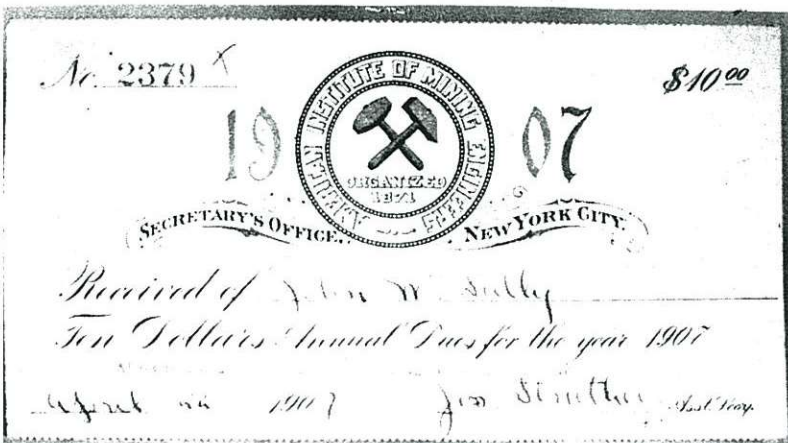 No. 2379 X
$10.00
1907
AMERICAN INSTITUTE OF MINING ENGINEERS
ORGANIZED
1871
SECRETARY'S OFFICE,
NEW YORK CITY.
Received of John W Sully
Ten Dollars Annual Dues for the year 1907
April 1907 Jos Struthers Asst. Secy.